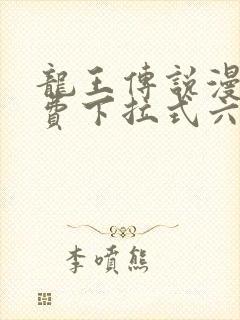 龍王傳說漫
費下拉式六
李噴熊